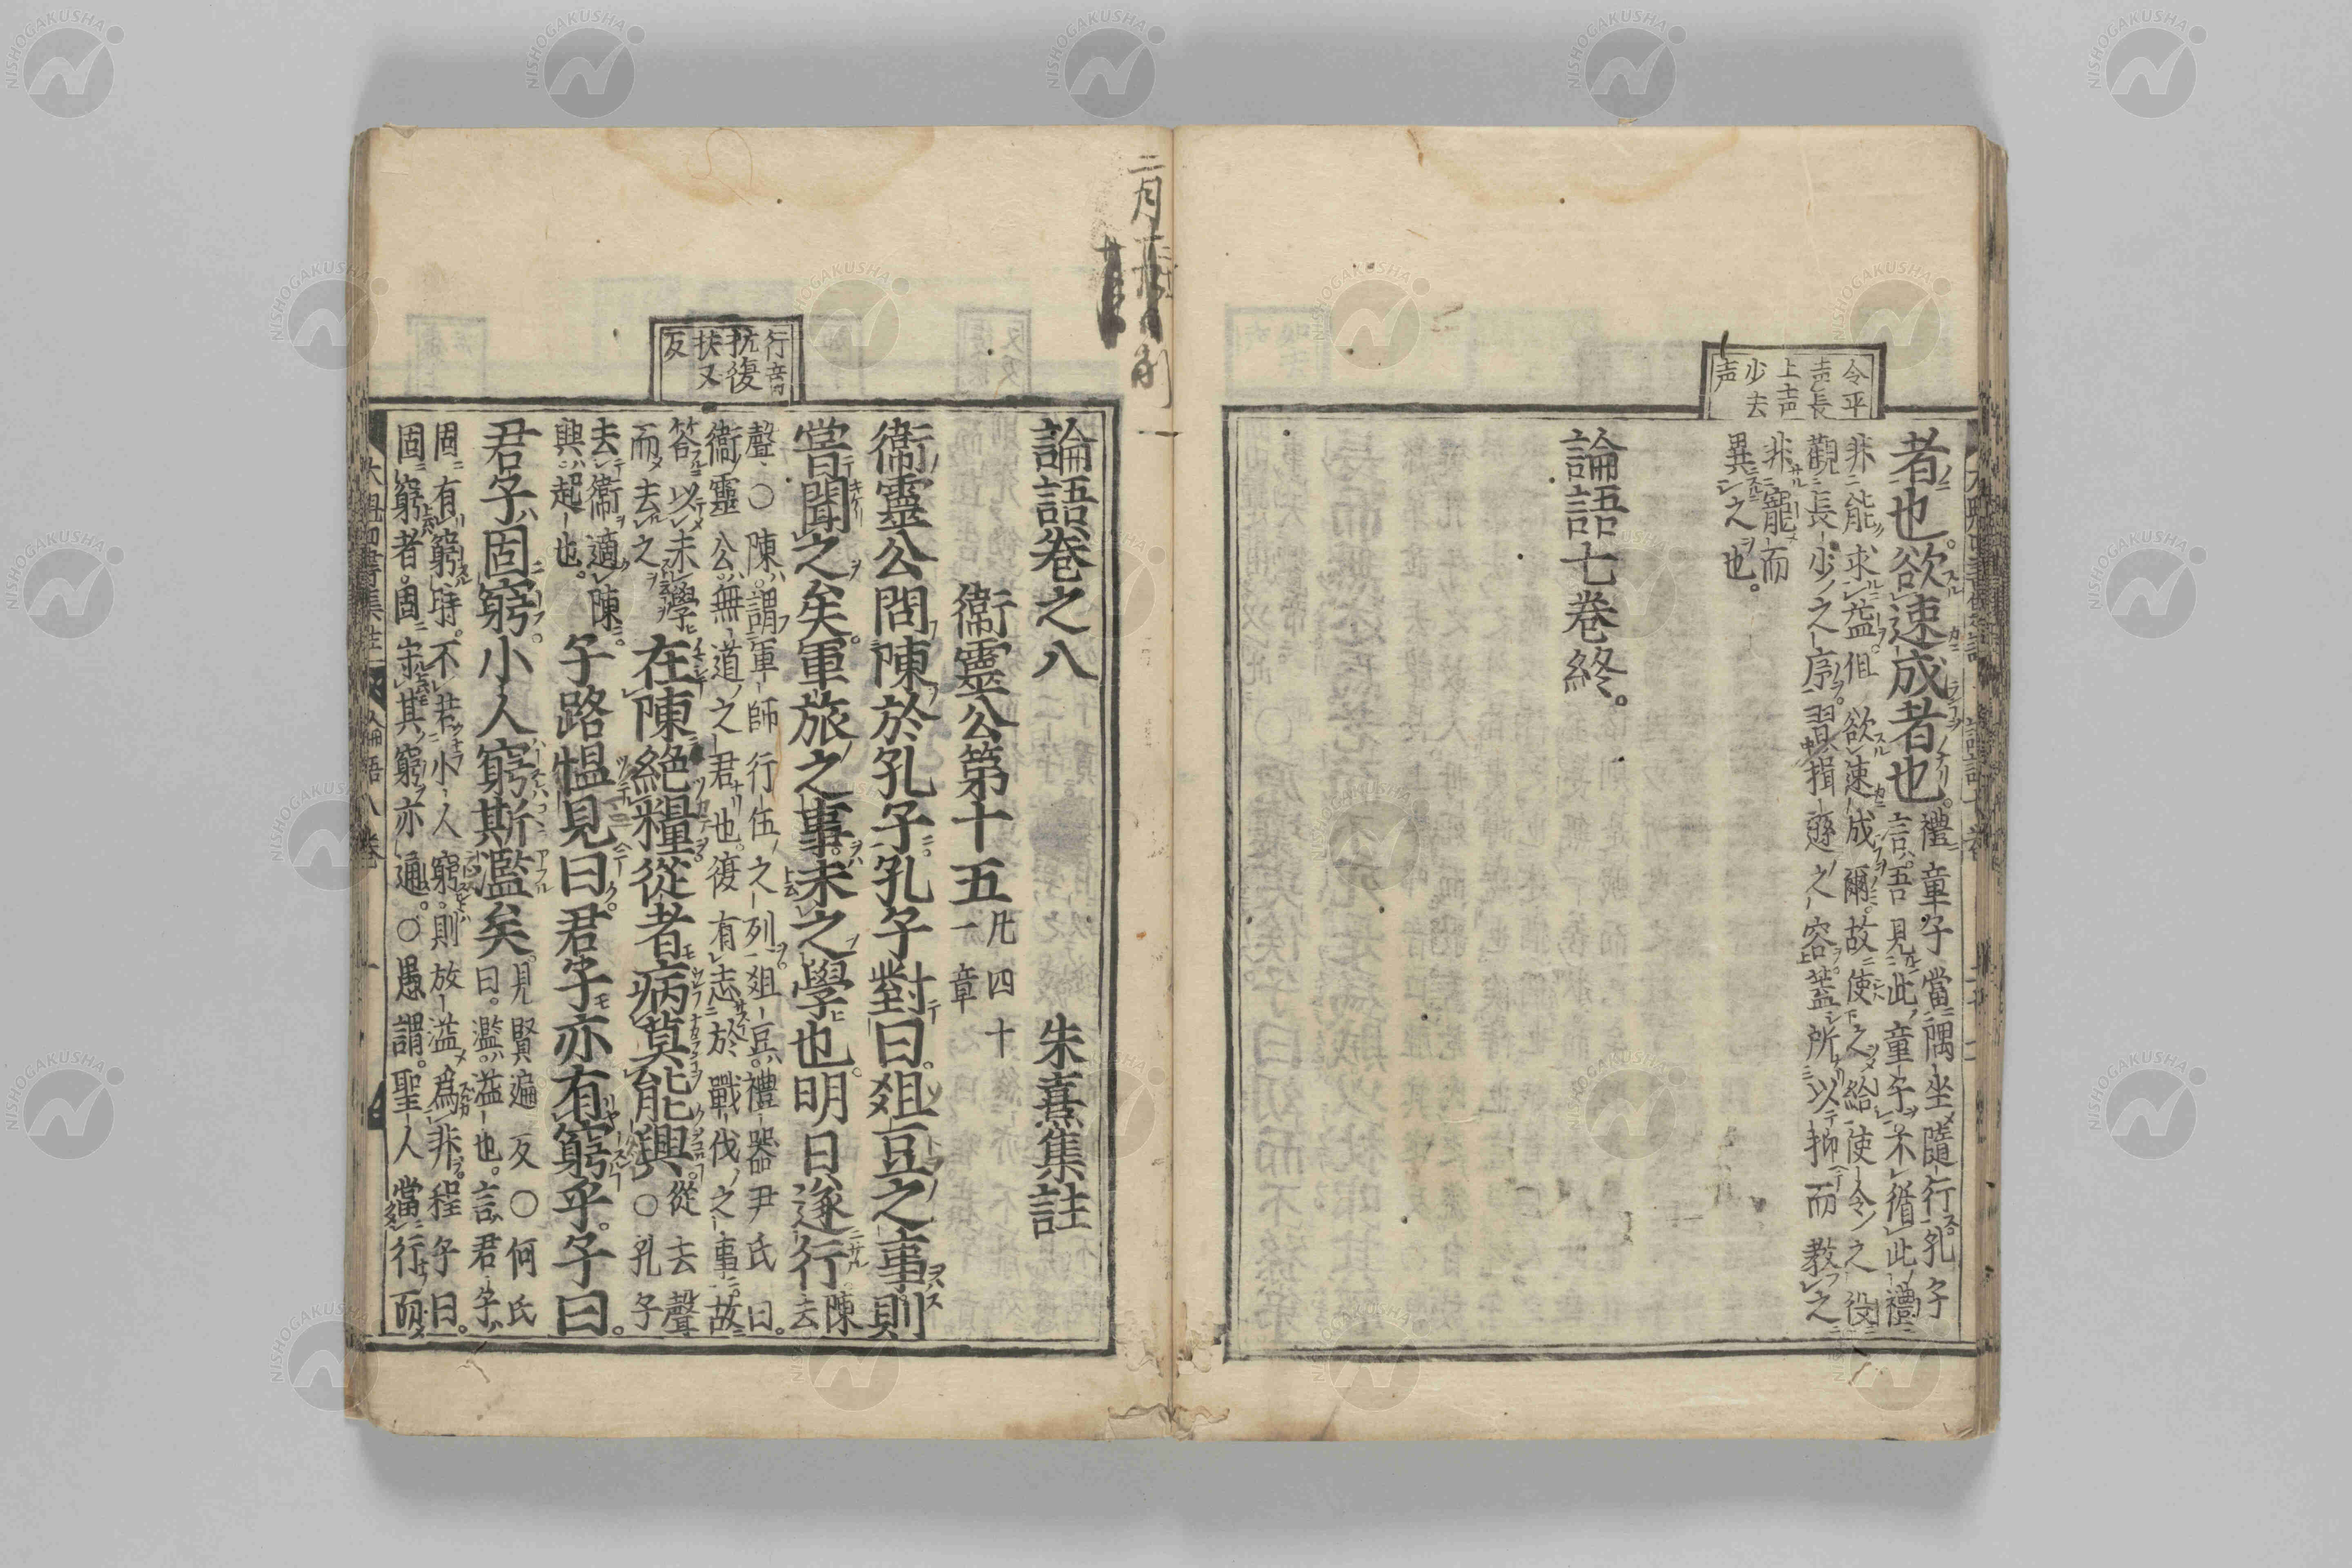 令平
声長
上声
少去
声
者也。欲速成者也。禮童子當隅坐隨行孔子
言吾見此童子不循此禮
非能求益但欲速成爾。故使之給使令之役
觀長少之序。習揖遜之容。蓋所以抑而教之
非寵而
異之也。
論語七卷終。
二月
論語卷之八 朱熹集註
衞靈公第十五 凡四十一章
衞靈公問陳於孔子。孔子對曰。爼豆之事則
甞聞之矣。軍旅之事。未之學也。明日遂行 陳去
聲。○陳。謂軍師行伍之列。爼豆。禮器尹氏曰。
衞靈公。無道之君也。復有志於戰伐之事。故
答以未學
而去之
在陳絶糧。從者病莫能興。從去聲○孔子
去衞適陳。
興起也。
子路慍見曰。君子亦有窮乎。子曰。
君子固窮。小人窮斯濫矣。見賢遍反○何氏
曰。濫溢也。言君子
固有窮時。不若小人窮。則放溢爲非。程子曰。
固窮者。固守其窮亦通。○愚謂。聖人當行而
行音
抗復
扶又
反
論語八卷